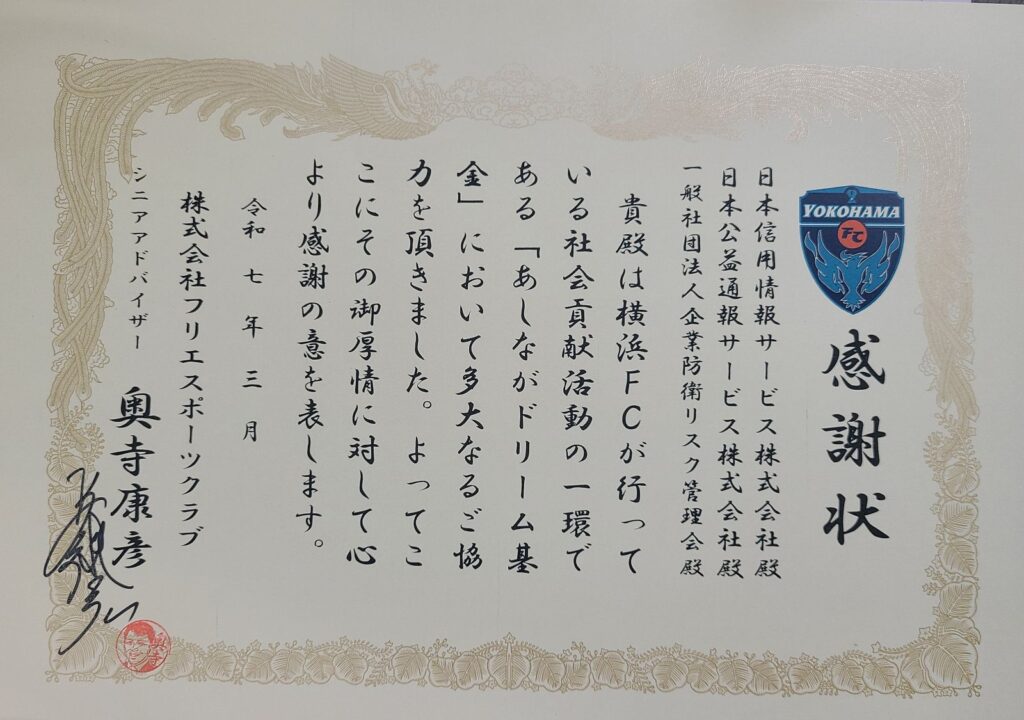 YOKOHAMA
FC
感謝状
日本信用情報サービス株式会社殿
日本公益通報サービス株式会社殿
一般社団法人企業防衛リスク管理会殿
貴殿は横浜FCが行って
いる社会貢献活動の一環で
ある「あしながドリーム基
金」において多大なるご協
力を頂きました。よってこ
こにその御厚情に対して心
より感謝の意を表します。
令和七年三月
株式会社フリエスポーツクラブ
シニアアドバイザー
奥寺康彦